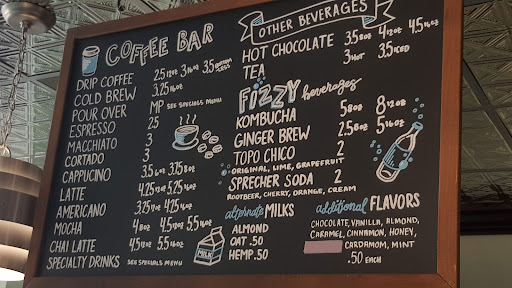 COFFEE BAR
DRIP COFFEE 2.5 12oz 3 16oz 3.5 BOTTOMLESS
COLD BREW 3.25 16oz
POUR OVER MP SEE SPECIALS MENU
ESPRESSO 2.5
MACCHIATO 3
CORTADO 3
CAPPUCINO 3.5 6oz 3.75 8oz
LATTE 4.25 12oz 5.25 16oz
AMERICANO 3.25 12oz 4.25 16oz
MOCHA 4 8oz 4.5 12oz 5.5 16oz
CHAI LATTE 4.5 12oz 5.5 16oz
SPECIALTY DRINKS SEE SPECIALS MENU
OTHER BEVERAGES
HOT CHOCOLATE 3.5 8oz 4 12oz 4.5 16oz
TEA 3 HOT 3.5 ICED
FIZZY beverages
KOMBUCHA 5 8oz 8 12oz
GINGER BREW 2.5 8oz 5 16oz
TOPO CHICO 2
ORIGINAL, LIME, GRAPEFRUIT
SPRECHER SODA 2
ROOTBEER, CHERRY, ORANGE, CREAM
alternate MILKS
ALMOND
OAT .50
HEMP .50
MILK
additional FLAVORS
CHOCOLATE, VANILLA, ALMOND,
CARAMEL, CINNAMON, HONEY,
CARDAMOM, MINT
.50 EACH